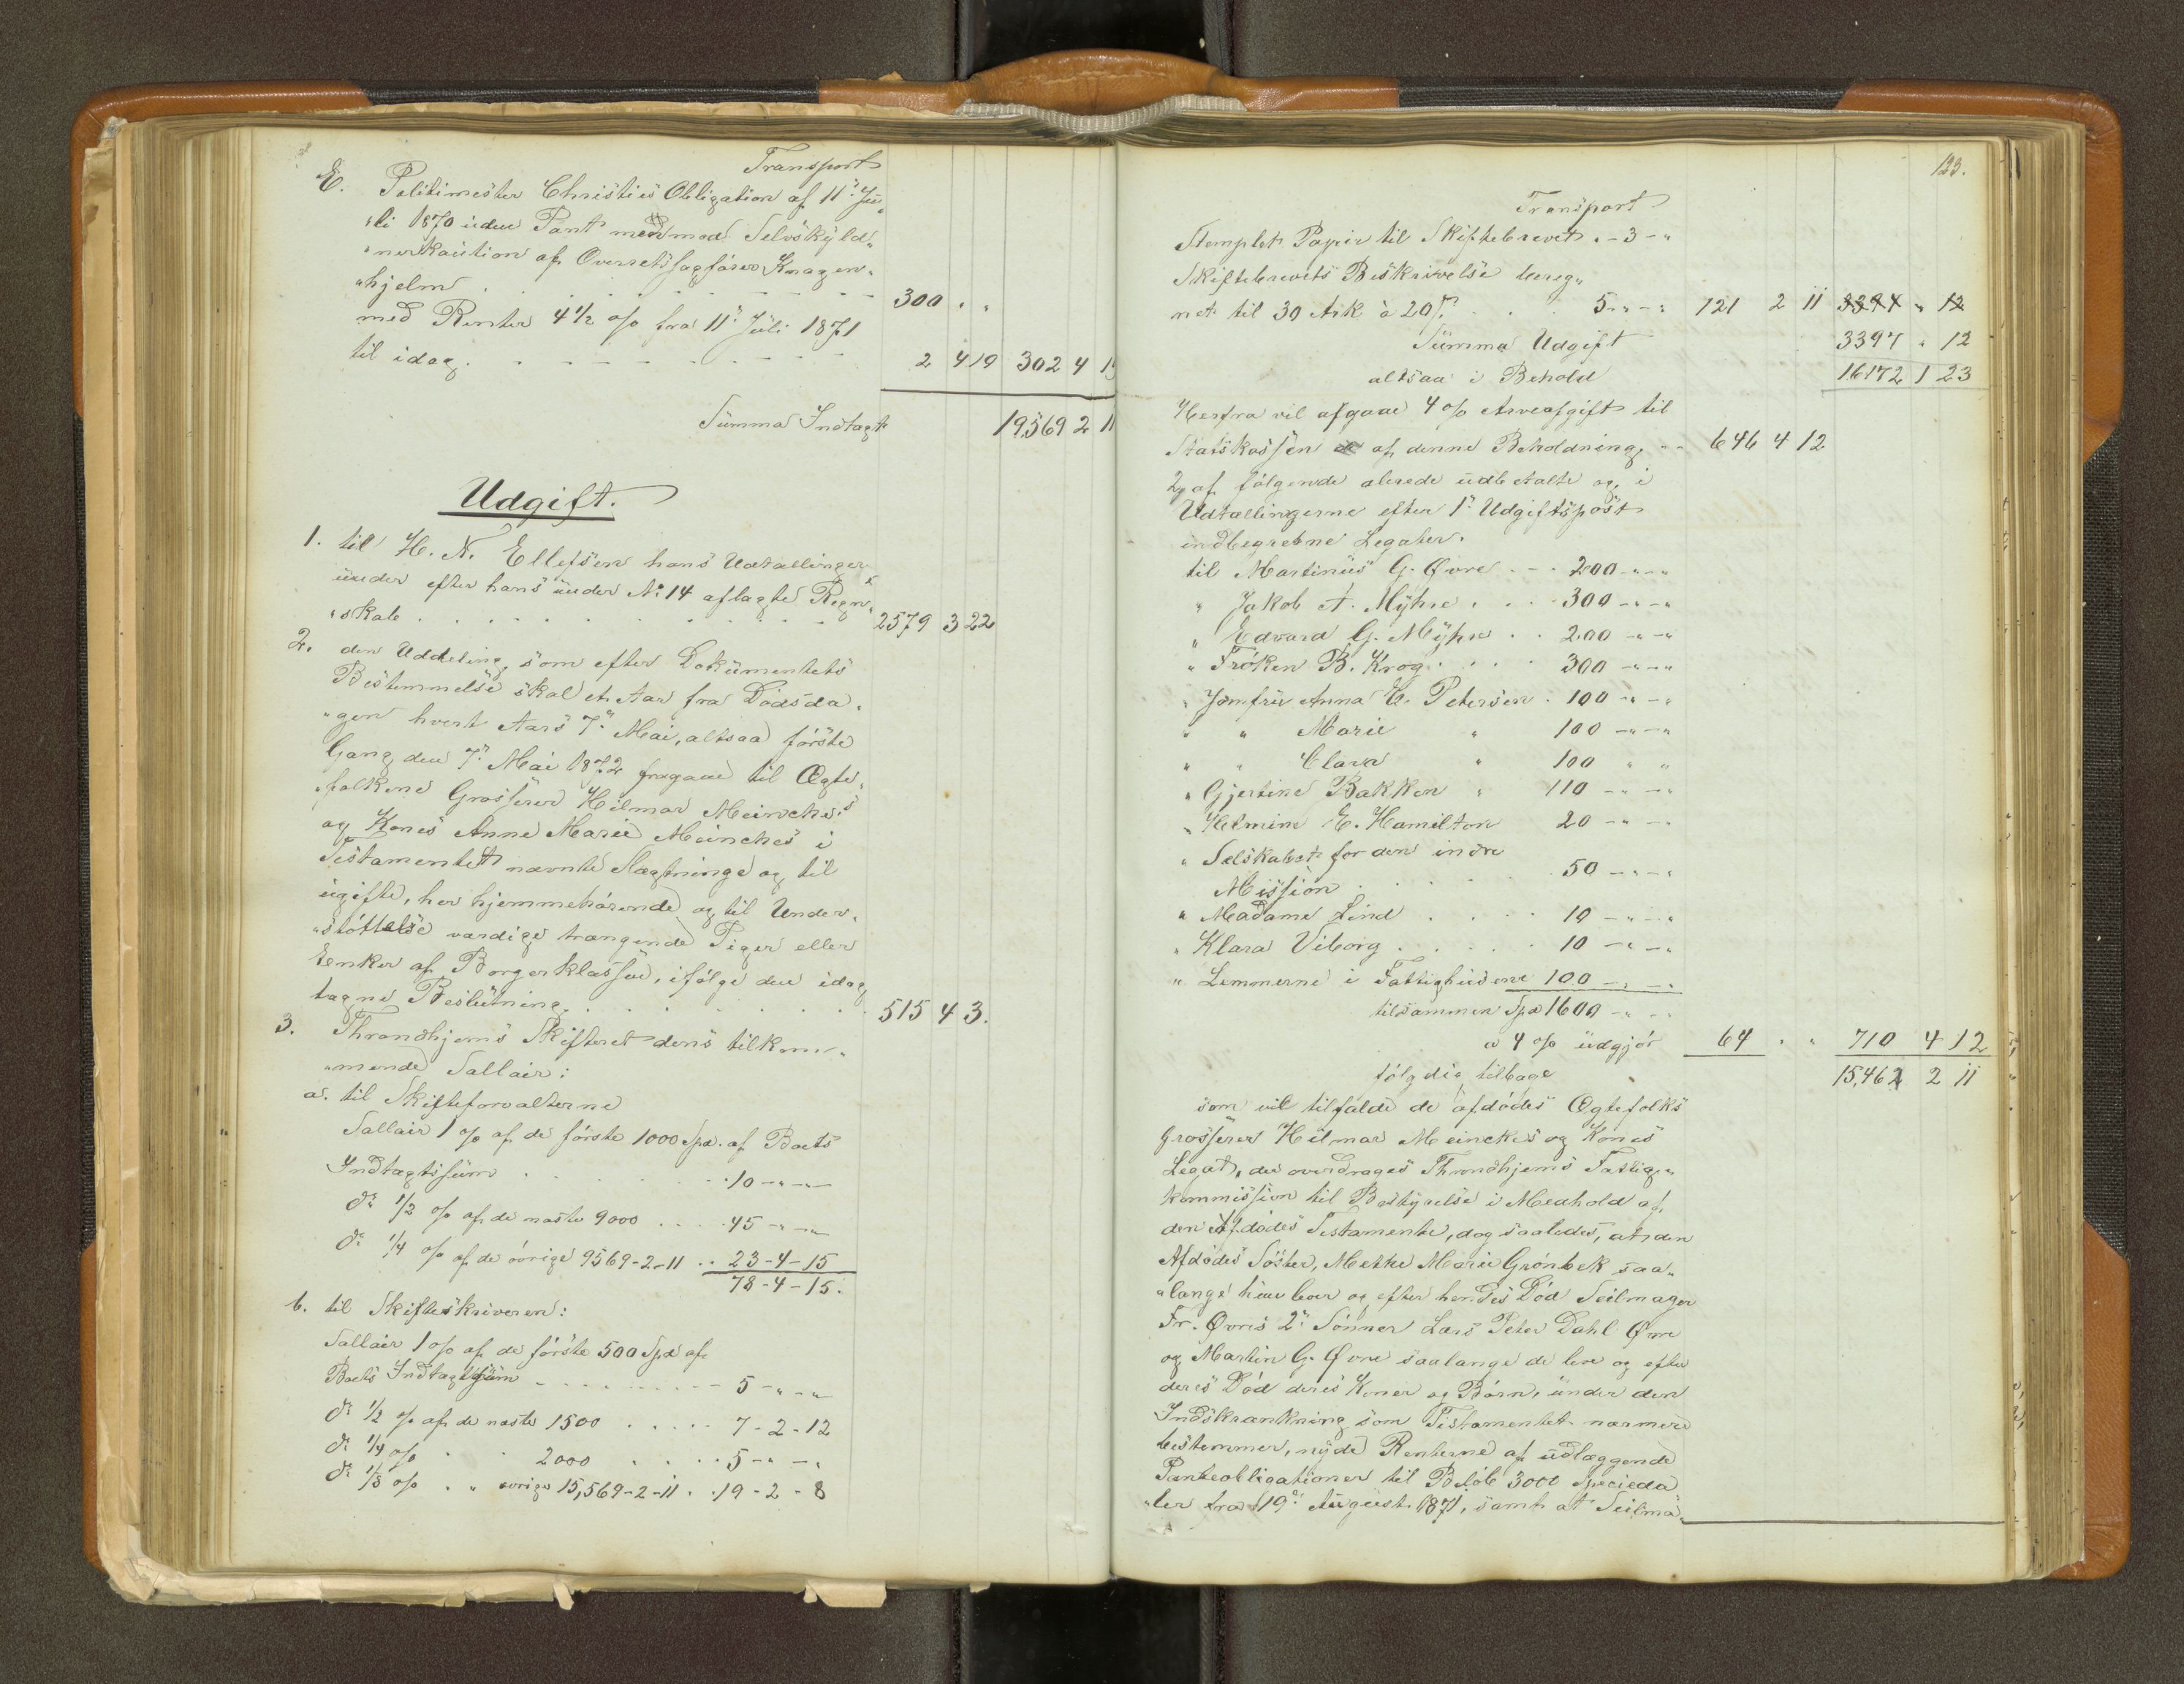 Transport
E. Politimester Christies Obligation af 11" Ju„
„li 1870 uden Pant men mod Selvskyld„
„nerkaution af Overretssagfører Knagen„
„hjelm . . . . . . . . 300 „ „
med Renter 4 1/2 % fra 11" Juli 1871
til idag . . . . . . . . 2 4 19 302 4 19
Summa Indtægt 19,569 2 11
Udgift.
1. til H. N. Ellefsen hans Udtællinger
under efter hans under No 14 aflagte Regn„
„skab . . . . . . . . 2579 3 22
2. den Uddeling, som efter Dokumentets
Bestemmelse skal et Aar fra Dødsda„
„gen hvert Aars 7" Mai, altsaa første
Gang den 7" Mai 1872 fragaae til Ægte„
„folkene Grosserer Hilmar Meinckes
og Kones Anne Marie Meinckes i
Testamentet nævnte Slægtninge og til
ugifte, her hjemmehørende og til Under„
„støttelse værdige trængende Piger eller
Enker af Borgerklassen, ifølge den idag
tagne Beslutning . . . . . . 515 4 3.
3. Throndhjems Skifteret dens tilkom„
„mende Sallair:
a. til Skifteforvalterne
Sallair 1 % af de første 1000 Spd. af Boets
Indtægtssum . . . . . . 10 - „ - „
do 1/2 % af de næste 9000 . . . . 45 - „ - „
do 1/4 % af de øvrige 9569-2-11 . . 23-4-15
78-4-15.
b. til Skifteskriveren:
Sallair 1 % af de første 500 Spd af
Boets Indtægtssum . . . . . . 5 - „ - „
do 1/2 % af de næste 1500 . . . . . 7-2-12
do 1/4 % „ „ 2000 . . . . 5 - „ - „
do 1/8 % „ „ øvrige 15,569-2-11 . . 19-2-8
123.
Transport
Stemplet Papir til Skiftebrevet „ - 3 - „
Skiftebrevets Beskrivelse bereg„
net til 30 Ark à 20 ß. . . . 5 - „ - „ 121 2 11 3394 „ 12
Summa Udgift 3397 „ 12
altsaa i Behold 16172 1 23
Herfra vil afgaae 4 % Arveafgift til
Statskassen af denne Beholdning, - - 646 4 12
2, af følgende alerede udbetalte og i
Udtællingerne efter 1" Udgiftspost
indbegrebne Legater.
til Martinus G. Øvre . - - 200 - „ - „
„ Jakob A. Myhre . . . . 300 - „ - „
„ Edvard G. Myhre . . 200 - „ - „
„ Frøken B. Krog . . . . 300 - „ - „
„ Jomfru Anna E. Petersen . 100 - „ - „
„ „ Marie „ 100 - „ - „
„ „ Clara „ 100 „ „
„ Gjertine Bakken „ 110 - „ - „
„ Helmine E. Hamilton 20 - „ - „
„ Selskabet for den indre
Mission . . . . . . 50 - „ - „
„ Madame Lind . . . . 10 - „ - „
„ Klara Viborg . . . . . 10 - „ - „
„ Lemmerne i Fattighusene 100 - „ - „
tilsammen Spd 1600 - „ - „
a 4 % udgjør 64 „ „ 710 4 12
følgdig tilbage „ 15,462 2 11
som vil tilfalde de afdødes Ægtefolks
Grosserer Hilmar Meinckes og Kones
Legat, der overdrages Throndhjems Fattig„
kommission til Bestyrelse i Medhold af
den Afdødes Testamente, dog saaledes, at den
Afdødes Søster, Mette Marie Grønbek saa„
„længe hun lever og efter hendes Død Seilmager
Fr. Øvres 2" Sønner Lars Peter Dahl Øvre
og Martin G. Øvre saalænge de leve og efter
deres Død deres Koner og Børn, under den
Indskrænkning som Testamentet nærmere
bestemmer, nyde Renterne af udlæggende
Panteobligationer til Beløb 3000 Specieda„
„ler fra 19de August 1871, samt at Seilma„